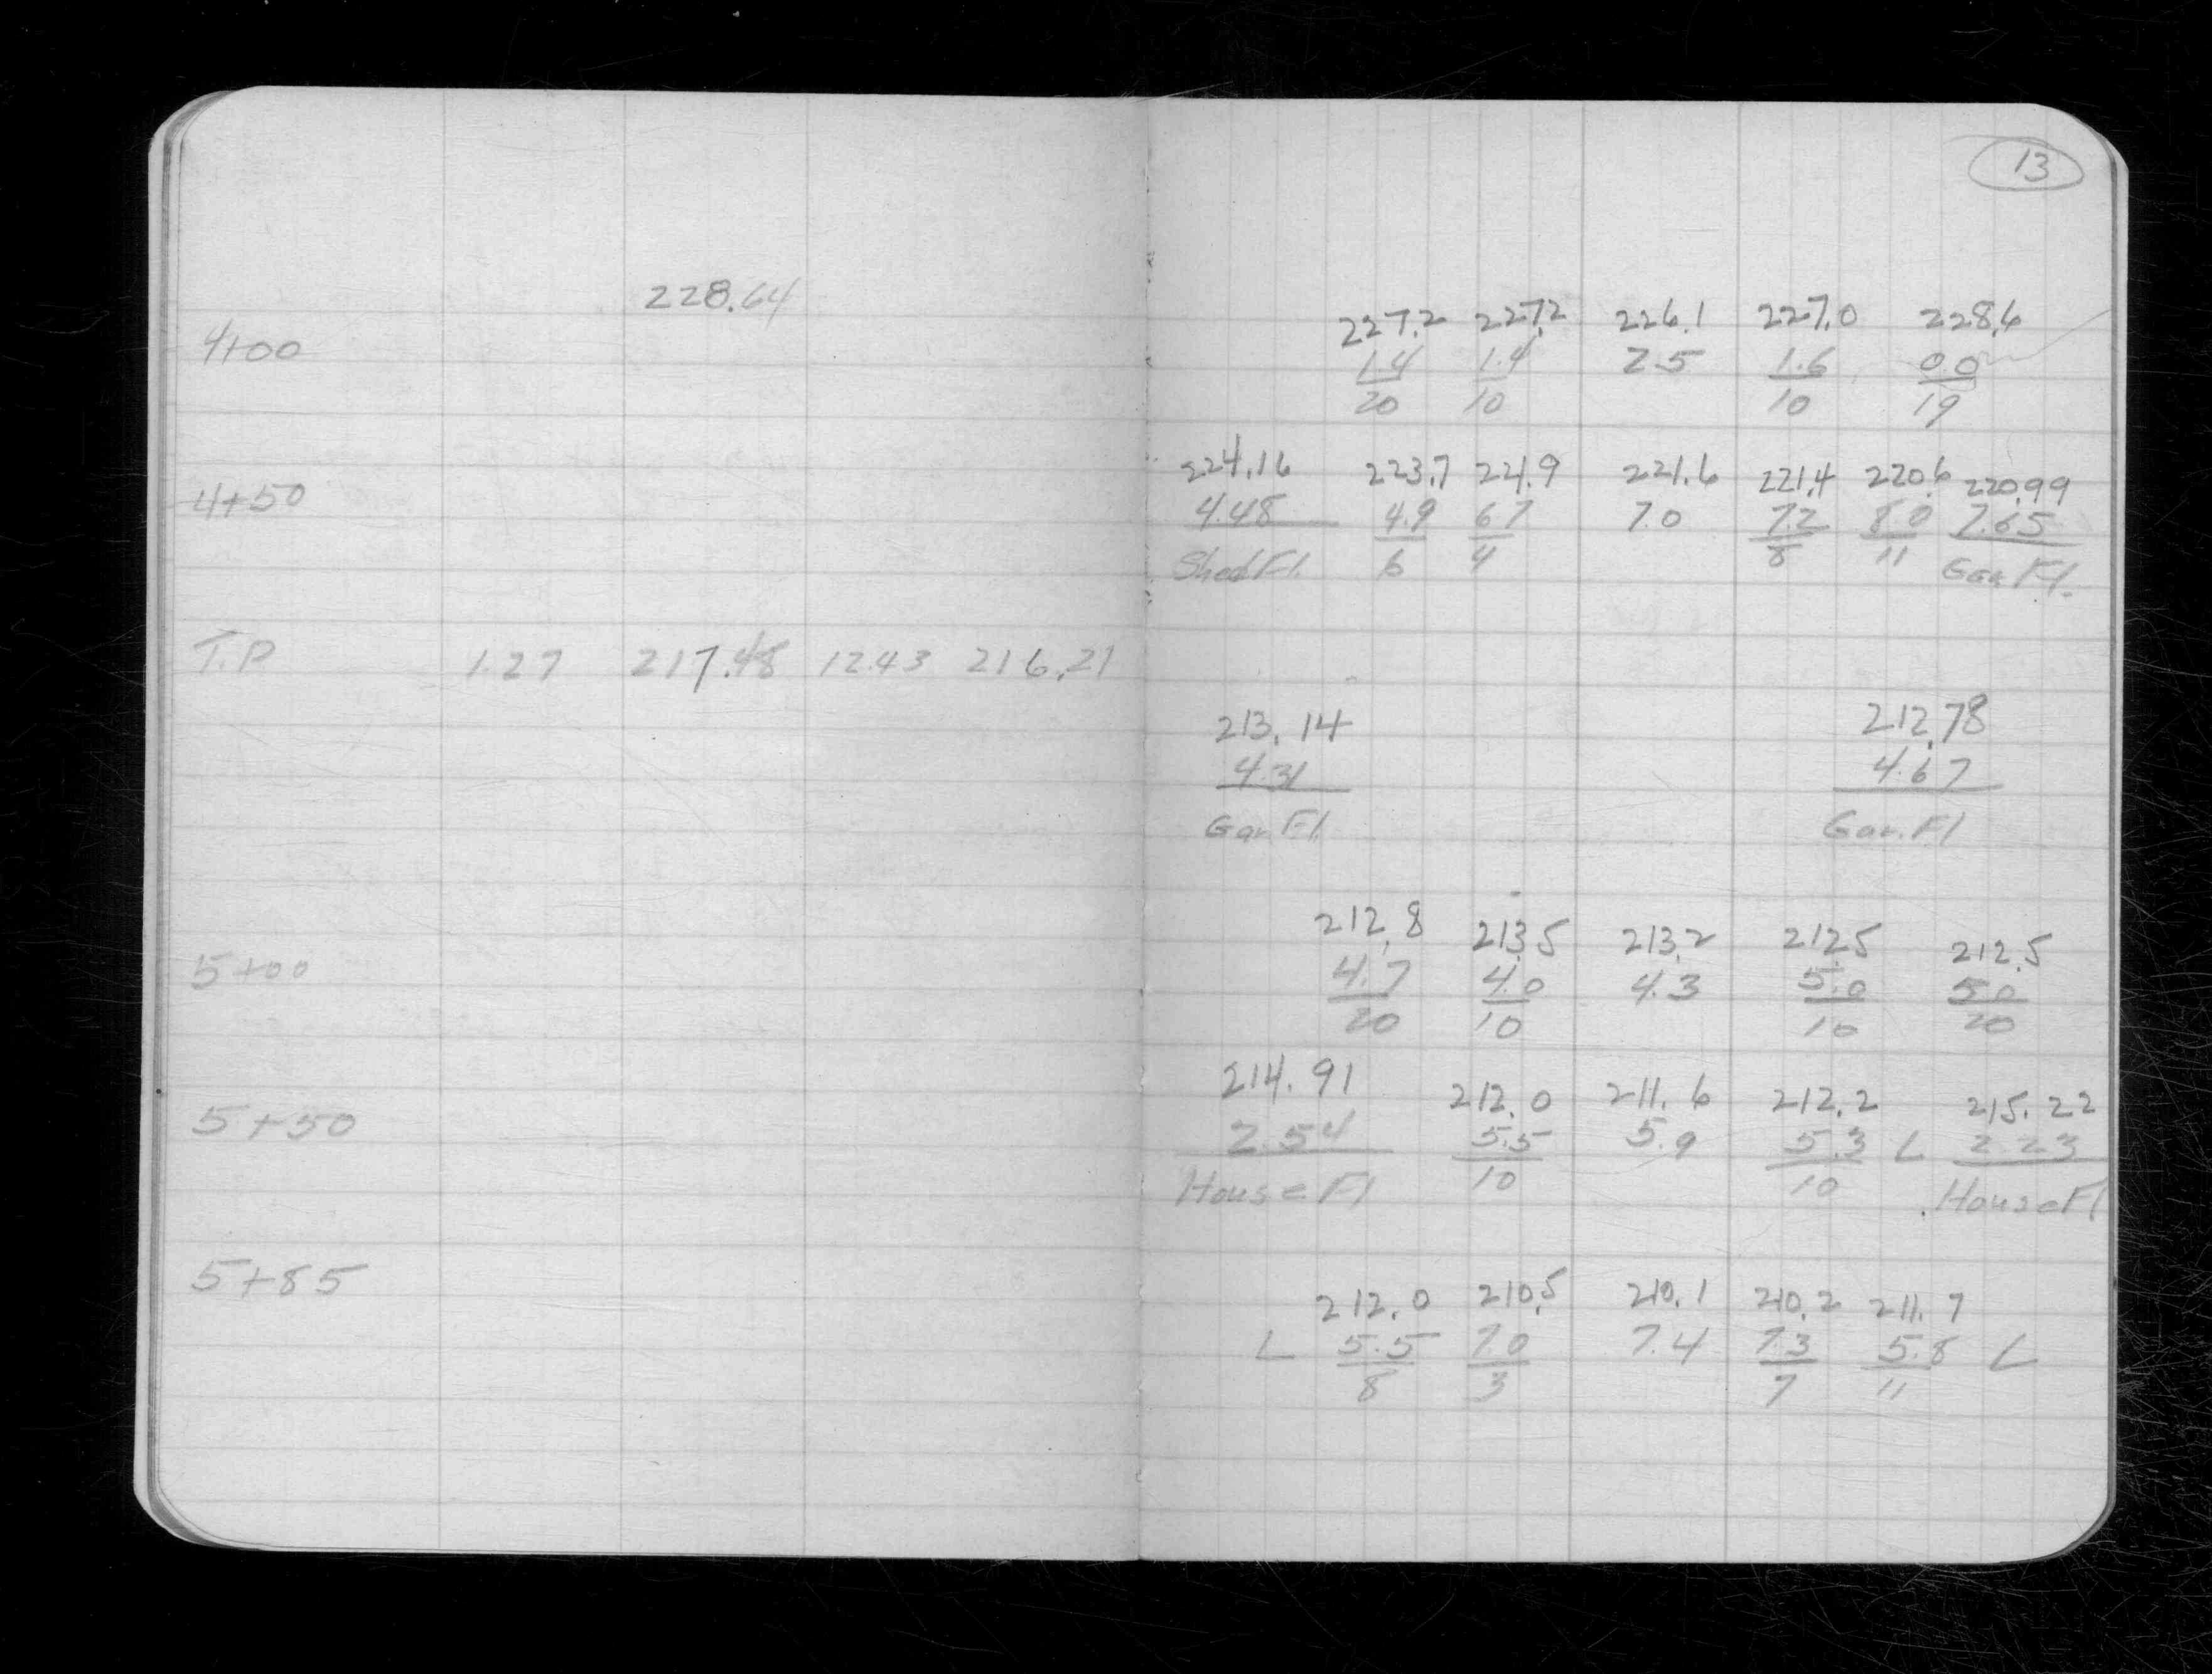 13
228.64
4+00
227.2 227.2 226.1 227.0 228.6
1.4 1.4 2.5 1.6 0.0
20 10 10 19
224.16 223.7 221.9 221.6 221.4 220.6 220.99
4+50
4.48 4.9 6.7 7.0 7.2 8.0 7.65
Shed Fl. 6 4 8 11 Gar. Fl.
T.P 1.27 217.48 12.43 216.21
213.14 212.78
4.31 4.67
Gar. Fl. Gar. Fl
212.8 213.5 213.2 212.5 212.5
5+00
4.7 4.0 4.3 5.0 5.0
20 10 10 20
214.91 212.0 211.6 212.2 215.22
5+50
2.54 5.5 5.9 5.3 L 2.23
House Fl 10 10 House Fl
5+85
212.0 210.5 210.1 210.2 211.7
L 5.5 7.0 7.4 7.3 5.8 L
8 3 7 11